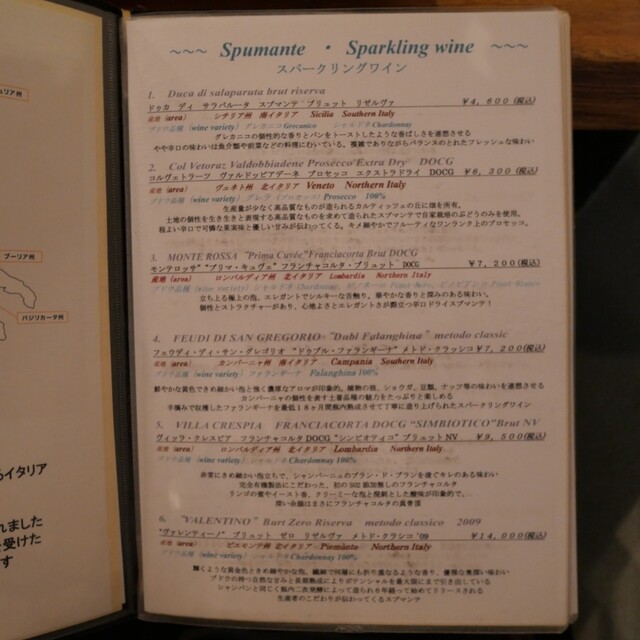 ~~~ Spumante ・ Sparkling wine ~~~
スパークリングワイン
1. Duca di salaparuta brut riserva
ドゥカ ディ サラパルータ スプマンテ ブリュット リゼルヴァ ￥4,600(税込)
産地 (area) シチリア州 南イタリア Sicilia Southern Italy
ブドウ品種 (wine variety) グレカニコ Grecanico シャルドネ Chardonnay
グレカニコの個性的な香りとパンをトーストしたような香ばしさを連想させる
やや辛口の味わいは魚介類や前菜などの料理にむいている。複雑でありながらもバランスのとれたフレッシュな味わい
2. Col Vetoraz Valdobbiadene Prosecco Extra Dry DOCG
コルヴェトラーツ ヴァルドッビアデーネ プロセッコ エクストラドライ DOCG ￥6,300 (税込)
産地 (area) ヴェネト州 北イタリア Veneto Northern Italy
ブドウ品種 (wine variety) グレラ (プロセッコ) Prosecco 100%
生産量が少なく高品質なものが造られるカルティッツェの丘に畑を所有。
土地の個性を生き生きと表現する高品質なものを求めて造られたスプマンテで自家栽培のぶどうのみを使用。
程よい辛口で可憐な果実味と優しい甘みが伝わってくる。キメ細やかでフルーティなワンランク上のプロセッコ。
3. MONTE ROSSA "Prima Cuvée" Franciacorta Brut DOCG
モンテロッサ "プリマ・キュヴェ" フランチャコルタ・ブリュット DOCG ￥7,200(税込)
産地 (area) ロンバルディア州 北イタリア Lombardia Northern Italy
ブドウ品種 (wine variety) シャルドネ Chardonnay, ピノ・ネーロ Pinot Nero, ピノ Pinot Bianco
立ち上る極上の泡、エレガントでシルキーな舌触り、華やかな香りと深みのある味わい。
個性とストラクチャーがあり、心地よさとエレガントさが際立つ辛口ドライスプマンテ。
4. FEUDI DI SAN GREGORIO "Dubl Falanghina" metodo classic
フェウディ・ディ・サン・グレゴリオ "ドゥブル・ファランギーナ" メトド・クラッシコ ￥7,200(税込)
産地 (area) カンパーニャ州 南イタリア Campania Southern Italy
ブドウ品種 (wine variety) ファランギーナ Falanghina 100%
鮮やかな黄色できめ細かい泡と強く濃厚なアロマが印象的。植物の根、ショウガ、豆類、ナッツ等の味わいを連想させる
カンパーニャの個性を表す土着品種の魅力をたっぷりと楽しめる
手摘みで収穫したファランギーナを最低18ヶ月間瓶内熟成させて丁寧に造り上げられたスパークリングワイン
5. VILLA CRESPIA FRANCIACORTA DOCG "SIMBIOTICO" Brut NV
ヴィッラ・クレスピア フランチャコルタ DOCG "シンビオティコ" ブリュット NV ￥9,500(税込)
産地 (area) ロンバルディア州 北イタリア Lombardia Northern Italy
ブドウ品種 (wine variety) シャルドネ Chardonnay 100%
非常にきめ細かい泡立ちで、シャンパーニュのブラン・ド・ブランを凌ぐキレのある味わい
完全有機製法にこだわった、初のSO2添加無しのフランチャコルタ
リンゴの蜜やイースト香、クリーミーな泡と溌剌とした酸味が印象的で、
深い余韻はまさにフランチャコルタの真骨頂
6. "VALENTINO" Burt Zero Riserva metodo classico 2009
"ヴァレンティーノ" ブリュット ゼロ リゼルヴァ メトド・クラシコ '09 ￥14,000(税込)
産地 (area) ピエモンテ州 北イタリア Piemonte Northern Italy
ブドウ品種 (wine variety) シャルドネ Chardonnay 100%
輝くような黄金色ときめ細やかな泡、繊細で何層にも折り重なるような香り、優雅な奥深い味わい
ブドウの持つ自然な甘みと長期熟成によりポテンシャルを最大限にまで引き出している
シャンパンと同じく瓶内二次発酵によって造られ6年経って始めてリリースされる
生産者のこだわりが伝わってくるスプマンテ
プーリア州
バジリカータ州
イタリア
れました
受けた
す